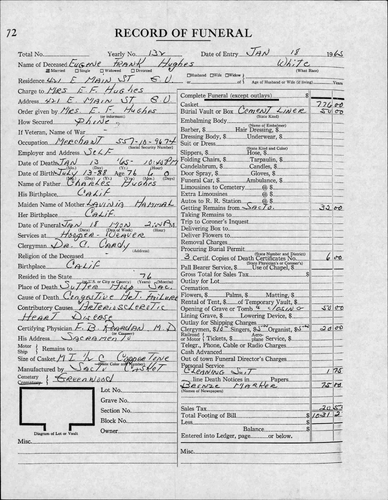 72
RECORD OF FUNERAL
Total No. Yearly No. 132 Date of Entry JAN 18 1965
Name of Deceased EUGENE FRANK HUGHES White
Married Single Widowed Divorced (What Race)
Residence 421 E MAIN ST G.V. Husband Wife Widow of Age of Husband or Wife (if living)
Charge to MRS E.F. HUGHES
Address 421 E MAIN ST G.V
Order Given by MRS E.F. HUGHES
How Secured PHONE
If Veteran, Name of War
Occupation MERCHANT 557-10-9674
(Social Security Number)
Employer and Address SELF
Date of Death JAN 13 '65 - 10:45 PM
Date of Birth JULY 13-88 Age 76 6 0
Name of Father CHARLES HUGHES
His Birthplace CALIF
Maiden Name of Mother LAVINIA HAMMAL
Her Birthplace CALIF
Date of Funeral JAN 18 MON 2
Services at HOOPER-WEAVER
Clergyman DR. C. CANDY
Religion of the Deceased
Birthplace CALIF
Resided in the State 76
Place of Death SUTTER HOSP SAC.
Cause of Death CONGESTIVE HRT. FAILURE
Contributory Causes ARTERIOSCLEROTIC
HEART DISEASE
Certifying Physician M.D
His Address SACRAMENTO
Motor
Ship
Remains to
Size of Casket
Manufactured by SACTO CASKET
Cemetery GREENWOOD
Lot No.
Grave No.
Section No.
Block No.
Owner
Diagram of Lot or Vault
Misc.
Complete Funeral (except outlays) $
Casket 776 00
Burial Vault or Box CEMENT LINER 50 00
(State Kind)
Embalming Body
(Name of Embalmer)
Barber, $ Hair Dressing, $
Dressing Body, $ Underwear, $
Suit or Dress
(State Kind and Color)
Slippers, $ Hose, $
Folding Chairs, $ Tarpaulin, $
Candelabrum, $ Candles, $
Door Spray, $ Gloves, $
Funeral Car, $ Ambulance, $
Limousines to Cemetery @ $
Extra Limousines @ $
Autos to R. R. Station @ $
Getting Remains from SACTO. 32 00
Taking Remains to
Trip to Coroner's Inquest
Delivering Box to
Deliver Flowers to
Removal Charges
Procuring Burial Permit
3 Certif. Copies of Death Certificates 6 00
Pall Bearer Service, $ Use of Chapel, $
Gross Total for Sales Tax $
Outlay for Lot
Cremation
Flowers, $ Palms, $ Matting, $
Rental of Tent, $ of Temporary Vault, $
Opening of Grave or Tomb & CLOSING 50 00
Lining Grave, $ Lowering Device, $
Outlay for Shipping Charges
Clergyman, $ Singers, $ Organist, $ 20 00
Railroad or Motor Tickets, $ Aeroplane Service, $
Telegr., Phone, Cable or Radio Charges
Cash Advanced
Out of town Funeral Director's Charges
Personal Service
CLEANING SUIT 1 75
line Death Notices in Papers
(Names of Newspapers)
BRONZE MARKER 75 00
Sales Tax
Total Footing of Bill $
Less $
Balance $
Entered into Ledger, page or below.
Misc.